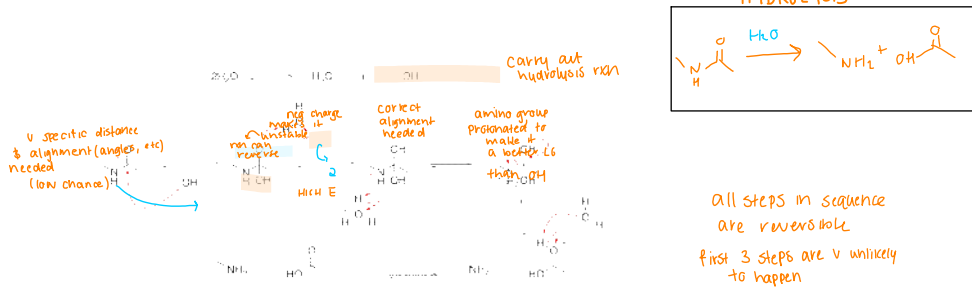 HYDROLYSIS
H₂O
O
N
H
NH₂ +
OH
O
2H₂O
H₃O
OH
carry out
hydrolysis rxn
v specific distance
& alignment (angles, etc)
needed
(low chance)
N
H
OH
neg charge
makes it
unstable
rxn can
reverse
N
H OH
2
HIGH E
correct
alignment
needed
OH
N
H OH
H
O
H H
amino group
protonated to
make it
a better LG
than OH
all steps in sequence
are reversible
first 3 steps are v unlikely
to happen
NH₂
HO
O
NH₂
HO